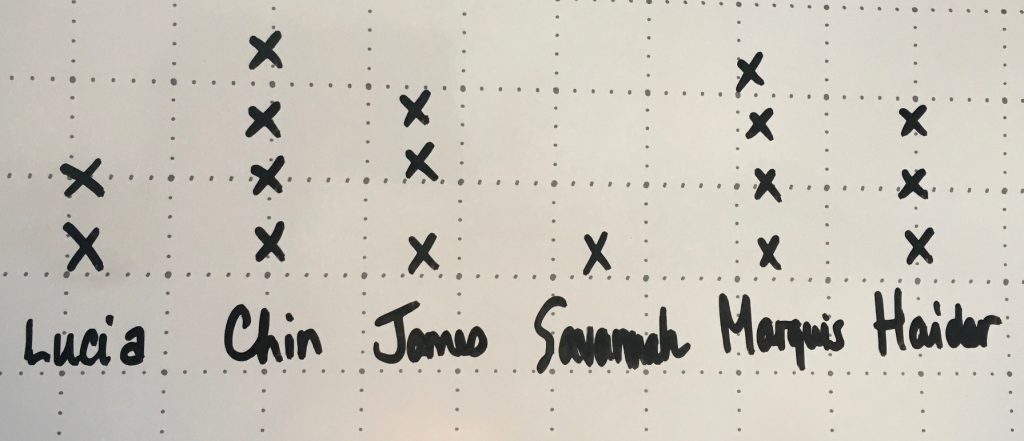 Lucia Chin James Savannah Marquis Haidar